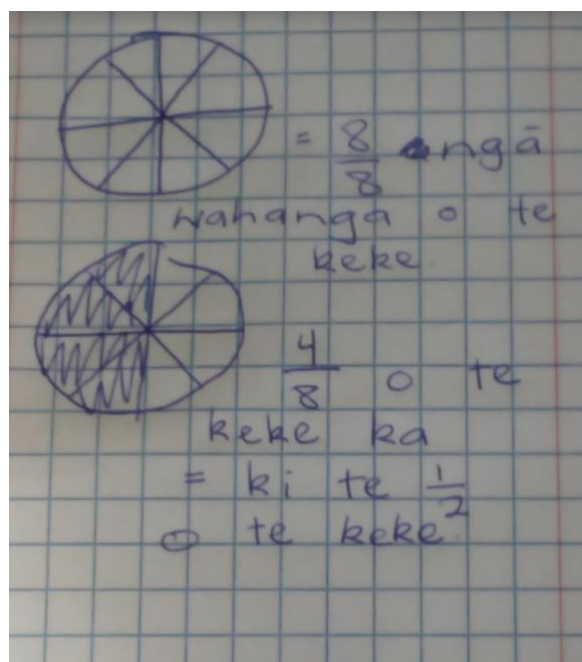 = 8/8 ngā
wahanga o te
keke
4/8 o te
keke ka
= ki te 1/2
o te keke